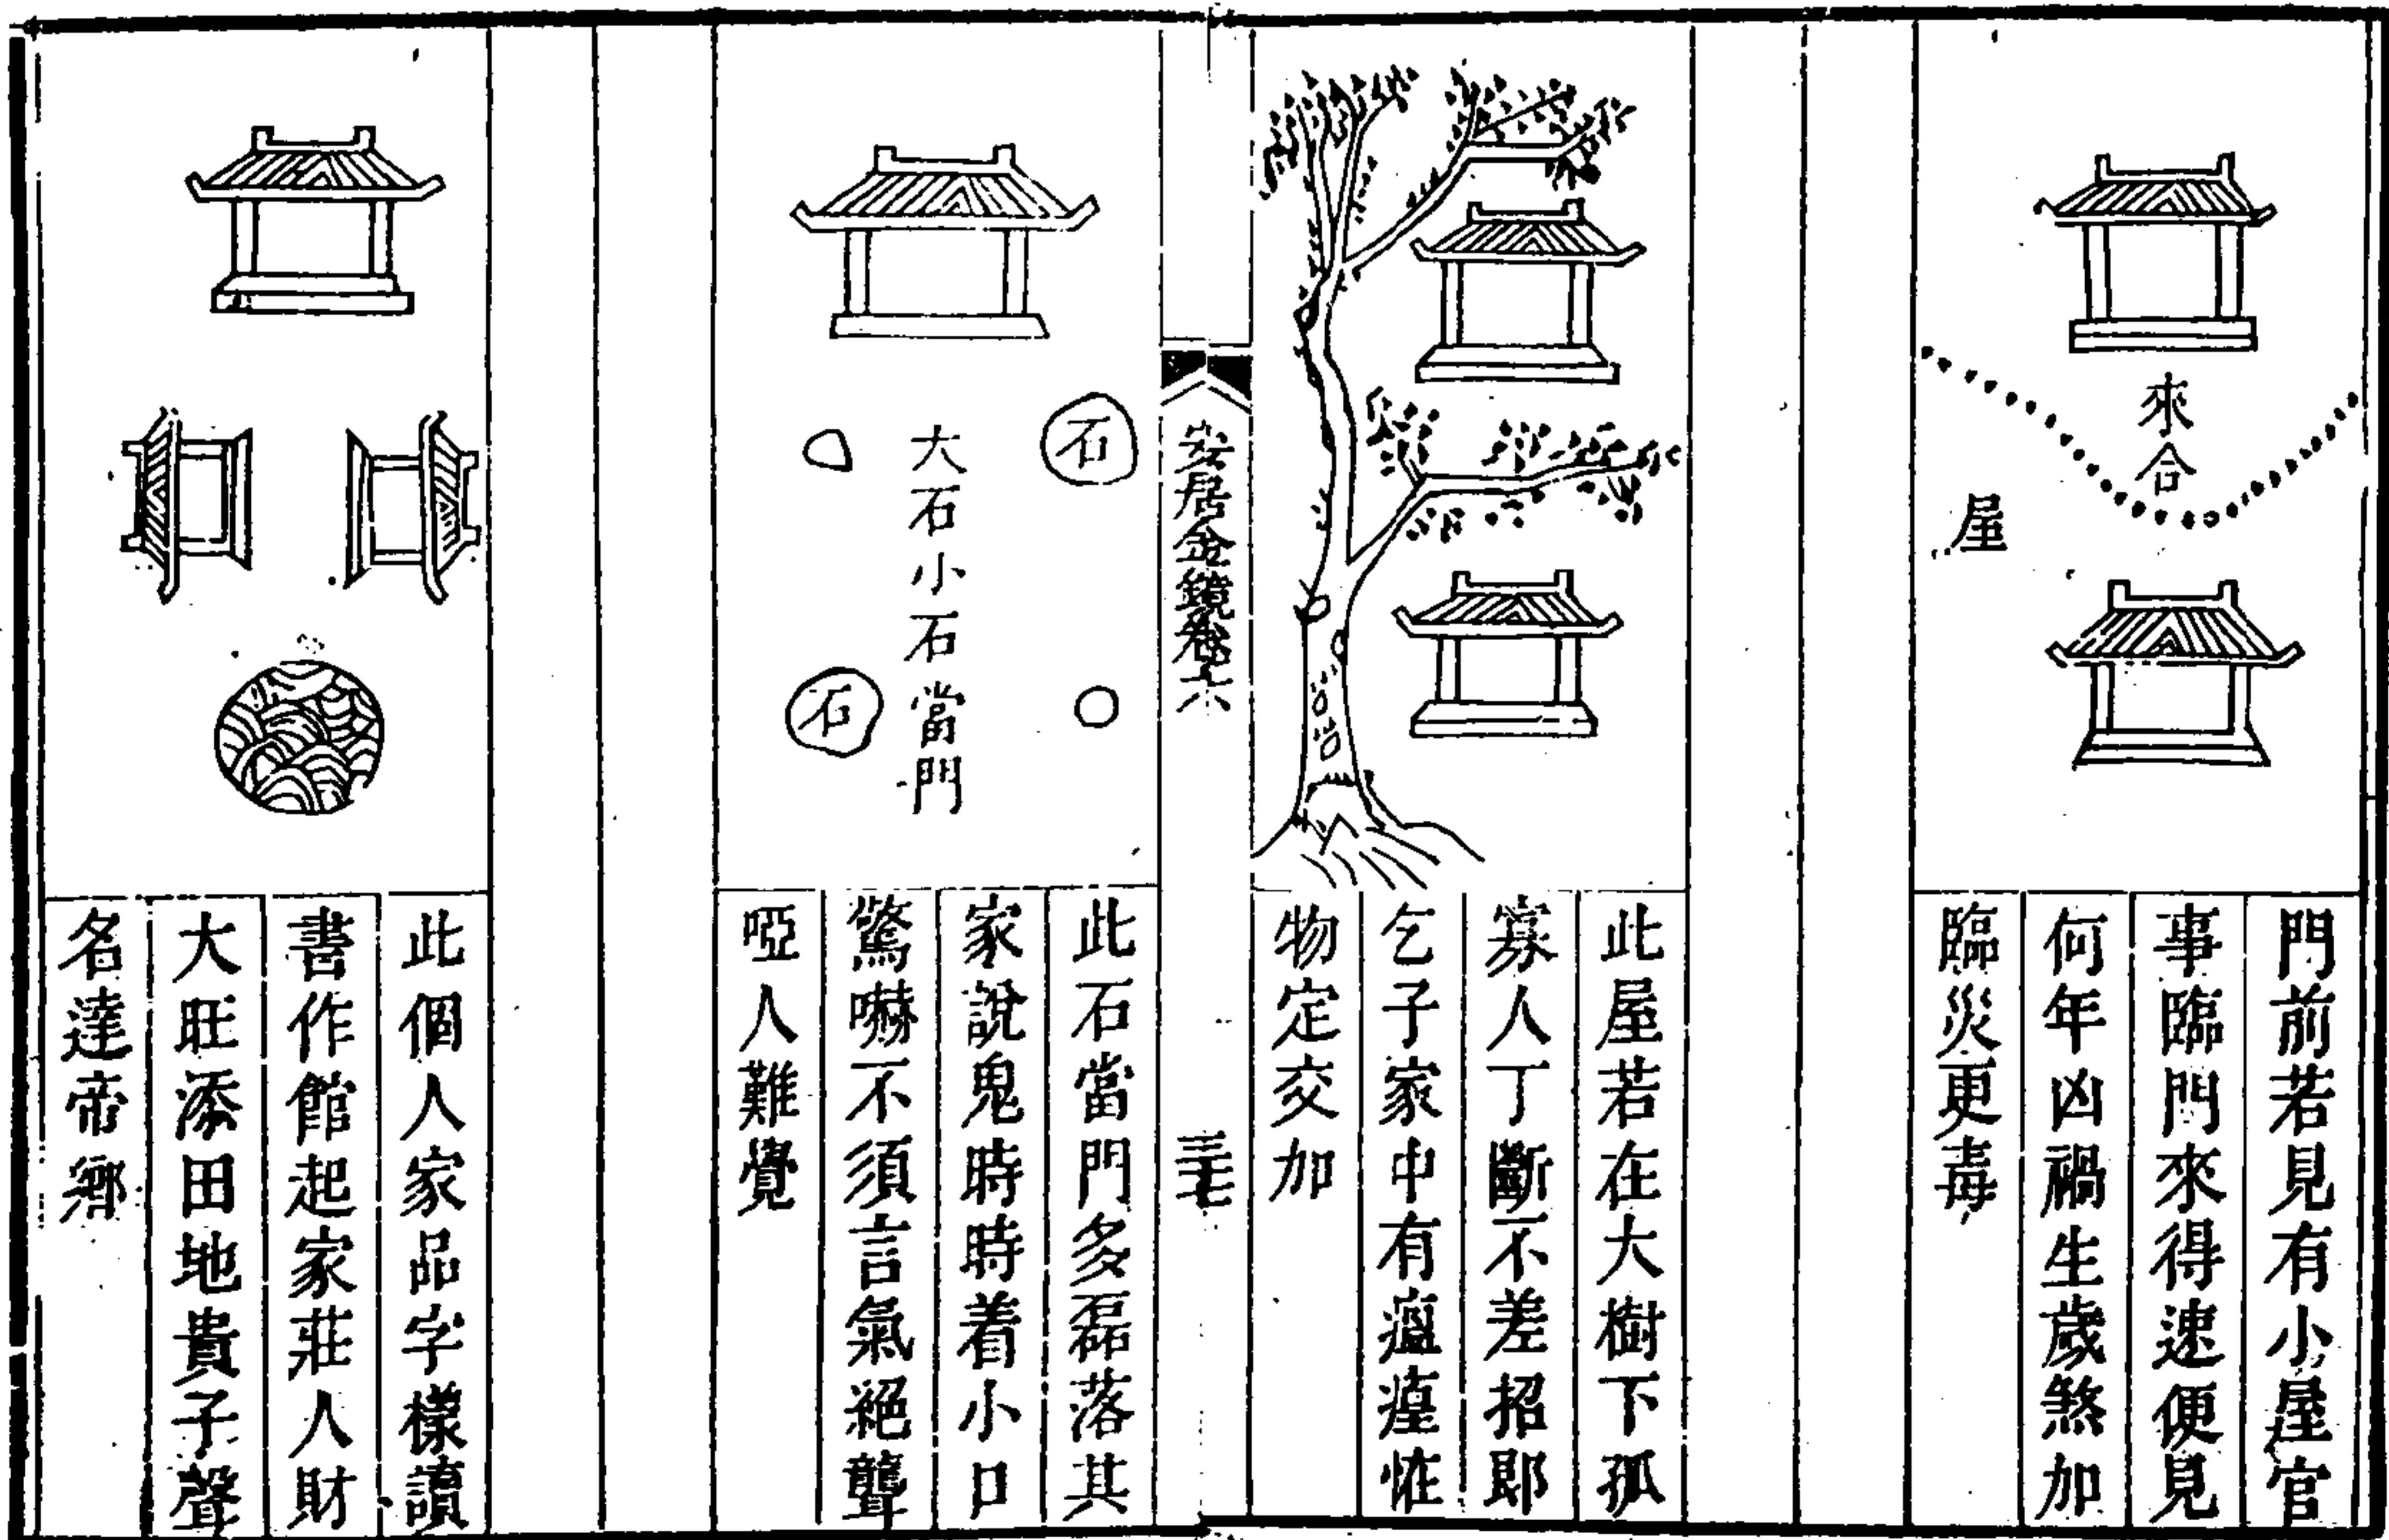 來合
屋
門前若見有小屋官
事臨門來得速便見
何年凶禍生歲煞加
臨災更毒
此屋若在大樹下孤
寡人丁斷不差招郎
乞子家中有瘟𤶊恠
物定交加
安居金鏡卷六
三七
石
大石小石當門
石
此石當門多磊落其
家說鬼時時着小口
驚嚇不須言氣絕聾
啞人難覺
此個人家品字樣讀
書作館起家莊人財
大旺添田地貴子聲
名達帝鄉